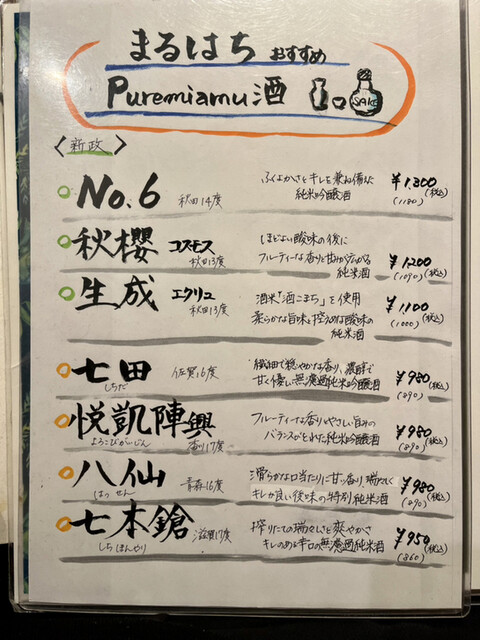 まるはち おすすめ
Puremiamu酒
SAKE
〈新政〉
No.6 秋田14度
ふくよかさとキレを兼ね備えた
純米吟醸酒
¥1,300(税込)
(1180)
秋櫻 コスモス
秋田13度
ほどよい酸味の後に
フルーティーな香りと甘みが広がる
純米酒
¥1,200(税込)
(1090)
生成 エクリュ
秋田13度
酒米「酒こまち」を使用
柔らかな旨味と控えめな酸味の
純米酒
¥1,100(税込)
(1000)
七田 佐賀16度
しちだ
繊細で穏やかな香り、濃醇で
甘く優しい無濾過純米吟醸酒
¥980(税込)
(890)
悦凱陣 興
よろこびがいじん 香川17度
フルーティーな香りとやさしい旨みの
バランスがとれた純米吟醸酒
¥980(税込)
(890)
八仙 青森16度
はっせん
滑らかな口当たりに甘い香り、瑞々しく
キレが良い後味の特別純米酒
¥980(税込)
(890)
七本鎗 滋賀17度
しちほんやり
搾りたての瑞々しさと爽やかさ
キレのある辛口の無濾過純米酒
¥950(税込)
(860)